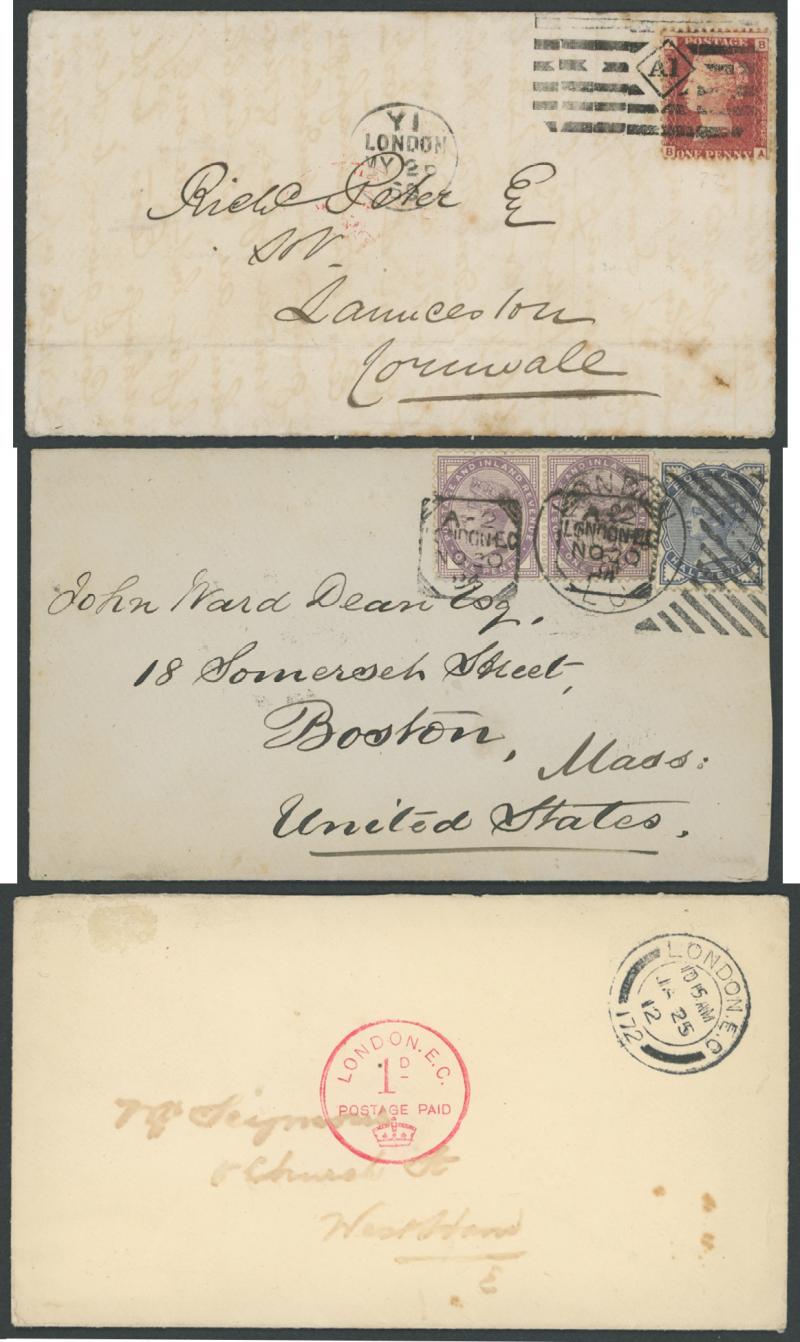 POSTAGE
B
A1
B ONE PENNY A
Y1
LONDON
MY 2
Richd Peter E
Solr
Launceston
Cornwall
POSTAGE AND INLAND REVENUE
AND INLAND
A-2
LONDON.E.C
NO 20
A-22
LONDON.E.C
NO 20
E.C
HALFPENNY
John Ward Dean Esq,
18 Somerset Street,
Boston,
Mass:
United States,
LONDON.E.C
10 15 AM
JA 25
12
172
LONDON.E.C.
1D
POSTAGE PAID
Mr Seymour
Church St
West Ham
E